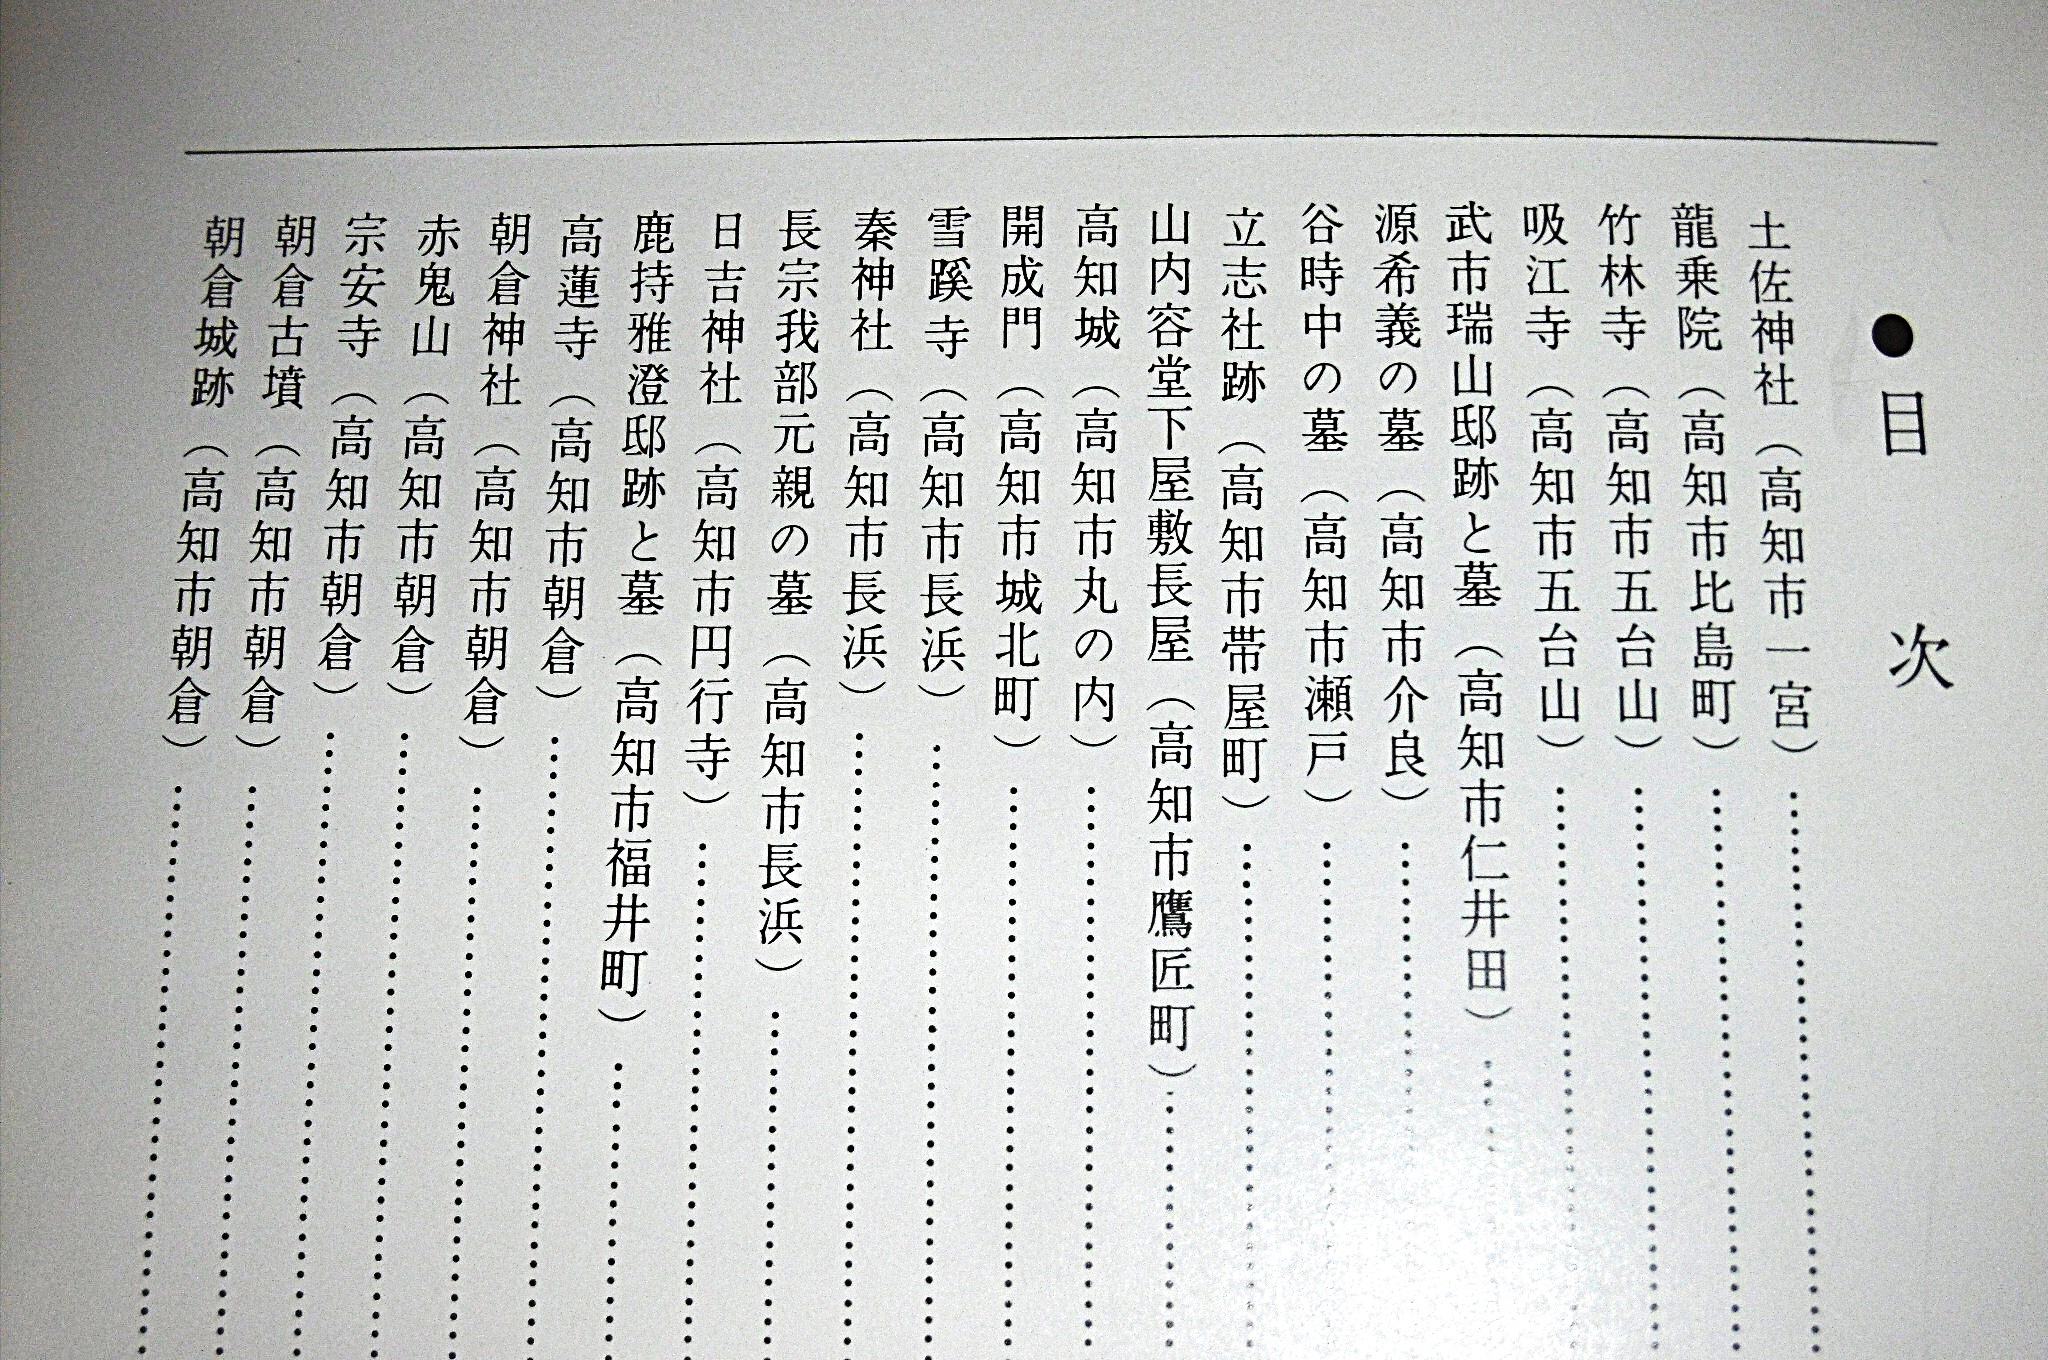 ●目次
土佐神社（高知市一宮）
龍乗院（高知市比島町）
竹林寺（高知市五台山）
吸江寺（高知市五台山）
武市瑞山邸跡と墓（高知市仁井田）
源希義の墓（高知市介良）
谷時中の墓（高知市瀬戸）
立志社跡（高知市帯屋町）
山内容堂下屋敷長屋（高知市鷹匠町）
高知城（高知市丸の内）
開成門（高知市城北町）
雪蹊寺（高知市長浜）
秦神社（高知市長浜）
長宗我部元親の墓（高知市長浜）
日吉神社（高知市円行寺）
鹿持雅澄邸跡と墓（高知市福井町）
高蓮寺（高知市朝倉）
朝倉神社（高知市朝倉）
赤鬼山（高知市朝倉）
宗安寺（高知市朝倉）
朝倉古墳（高知市朝倉）
朝倉城跡（高知市朝倉）